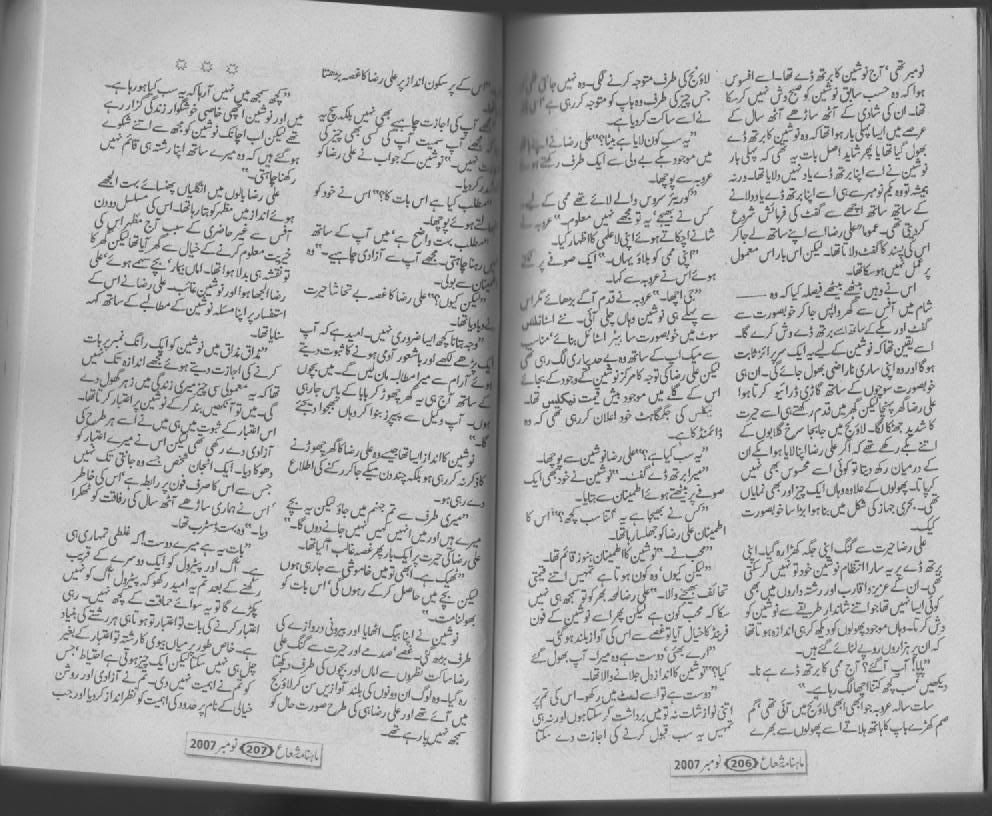 نومبر تھی‘ آج نوشین کا برتھ ڈے تھا۔ اسے افسوس
ہوا کہ وہ حسب سابق نوشین کو صبح وش نہیں کر سکا
تھا۔ ان کی شادی کے آٹھ ساڑھے آٹھ سال کے
عرصے میں ایسا پہلی بار ہوا تھا کہ وہ نوشین کا برتھ ڈے
بھول گیا تھا یا پھر شاید اصل بات یہ تھی کہ پہلی بار
نوشین نے اسے اپنا برتھ ڈے یاد نہیں دلایا تھا۔ ورنہ
ہمیشہ تو وہ یکم نومبر سے ہی اسے اپنا برتھ ڈے یاد دلانے
کے ساتھ ساتھ اچھے سے گفٹ کی فرمائش شروع
کر دیتی تھی۔ عموماً علی رضا اسے اپنے ساتھ لے جا کر
اس کی پسند کا گفٹ دلاتا تھا۔ لیکن اس بار اس معمول
پر عمل نہیں ہو سکا تھا۔
اس نے وہیں بیٹھے بیٹھے فیصلہ کیا کہ وہ ـــــــ
شام میں آفس سے گھر واپس جا کر خوبصورت سے
گفٹ اور بکے کے ساتھ اسے برتھ ڈے وش کرے گا۔
اسے یقین تھا کہ نوشین کے لیے یہ ایک سرپرائز ثابت
ہو گا اور وہ اپنی ساری ناراضی بھول جائے گی۔ ان ہی
خوبصورت سوچوں کے ساتھ گاڑی ڈرائیو کرتا ہوا
علی رضا گھر پہنچا لیکن گھر میں قدم رکھتے ہی اسے حیرت
کا شدید جھٹکا لگا۔ لاؤنج میں جابجا سرخ گلابوں کے
اتنے بکے رکھے تھے کہ اگر علی رضا اپنا لایا ہوا بکے ان
کے درمیان رکھ دیتا تو کوئی اسے محسوس بھی نہیں
کر پاتا۔ پھولوں کے علاوہ وہاں ایک چیز اور بھی نمایاں
تھی۔ بحری جہاز کی شکل میں بنا ہوا بڑا سا خوبصورت
کیک۔
علی رضا حیرت سے گنگ اپنی جگہ کھڑا رہ گیا۔ اپنی
برتھ ڈے پر یہ سارا انتظام نوشین خود تو نہیں کر سکتی
تھی۔ ان کے عزیز و اقارب اور رشتہ داروں میں بھی
کوئی ایسا نہیں تھا جو اتنے شاندار طریقے سے نوشین کو
وش کرتا۔ وہاں موجود پھولوں کو دیکھ کر ہی اندازہ ہوتا تھا
کہ ان پر ہزاروں روپے لٹائے گئے ہیں۔
”پاپا! آپ آ گئے؟ آج ممی کا برتھ ڈے ہے نا۔
دیکھیں سب کچھ کتنا اچھا لگ رہا ہے۔“
سات سالہ عروبہ جو ابھی ابھی لاؤنج میں آئی تھی‘ گم
صم کھڑے باپ کا ہاتھ ہلاتے اسے پھولوں سے بھرے
لاؤنج کی طرف متوجہ کرنے لگی۔ وہ نہیں جانتی تھی کہ
جس چیز کی طرف وہ باپ کو متوجہ کر رہی ہے‘ اس ہی
نے اسے ساکت کر دیا ہے۔
”بیٹا! یہ سب کون لایا ہے؟“ علی رضا نے اپنے ہاتھ
میں موجود بکے بے دلی سے ایک طرف رکھتے ہوئے
عروبہ سے پوچھا۔
”کوریئر سروس والے لائے تھے ممی کے لیے۔
کس نے بھیجے‘ یہ تو مجھے نہیں معلوم۔“ عروبہ نے
شانے اچکاتے ہوئے اپنی لاعلمی کا اظہار کیا۔
”اپنی ممی کو بلاؤ یہاں۔“ ایک صوفے پر
ہوئے اس نے عروبہ سے کہا۔
”جی اچھا۔“ عروبہ نے قدم آگے بڑھائے مگر اس
سے پہلے ہی نوشین وہاں چلی آئی۔ نئے اسٹائلش
سوٹ میں خوبصورت سا ہیئر اسٹائل بنائے‘ مناسب
سے میک اپ کے ساتھ وہ بے حد پیاری لگ رہی تھی
لیکن علی رضا کی توجہ کا مرکز نوشین کے وجود کے بجائے
اس کے گلے میں موجود بیش قیمت نیکلس تھا۔
نیکلس کی جگمگاہٹ خود اعلان کر رہی تھی کہ وہ
ڈائمنڈ کا ہے۔
”یہ سب کیا ہے؟“ علی رضا نوشین سے پوچھا۔
”میرا برتھ ڈے گفٹ۔“ نوشین نے خود بھی ایک
صوفے پر بیٹھتے ہوئے اطمینان سے بتایا۔
”کس نے بھیجا ہے یہ اتنا سب کچھ؟“ اس کا
اطمینان علی رضا کو جھلسا رہا تھا۔
”محب نے۔“ نوشین کا اطمینان ہنوز قائم تھا۔
”لیکن کیوں‘ وہ کون ہوتا ہے تمہیں اتنے قیمتی
تحائف بھیجنے والا۔“ علی رضا لمحہ بھر کو تو سمجھ ہی نہیں
سکا کہ محب کون ہے لیکن پھر اسے نوشین کے فون
فرینڈ کا خیال آیا تو غصے سے اس کی آواز بلند ہو گئی۔
”ارے بھئی‘ دوست ہے وہ میرا۔ آپ بھول گئے
کیا؟“ نوشین کا انداز دل جلانے والا تھا۔
”دوست ہے تو اسے لمٹ میں رکھو۔ اس کی تم پر
اتنی نوازشات نہ تو میں برداشت کر سکتا ہوں اور نہ ہی
تمہیں یہ سب قبول کرنے کی اجازت دے سکتا
ماہنامہ شعاع 206 نومبر 2007
اس کے پر سکون انداز پر علی رضا کا غصہ بڑھتا
آپ کی اجازت چاہیے بھی نہیں بلکہ سچ یہ
مجھے آپ سمیت آپ کی کسی بھی چیز کی
نہیں۔“ نوشین کے جواب نے علی رضا کو
کر دیا۔
”مطلب کیا ہے اس بات کا؟“ اس نے خود کو
ہوئے پوچھا۔
”مطلب بہت واضح ہے‘ میں آپ کے ساتھ
رہنا چاہتی۔ مجھے آپ سے آزادی چاہیے۔“ وہ
اطمینان سے بولی۔
”لیکن کیوں؟“ علی رضا کا غصہ بے تحاشا حیرت
نے دبا دیا تھا۔
”وجہ بتانا کچھ ایسا ضروری نہیں۔ امید ہے کہ آپ
ایک پڑھے لکھے اور باشعور آدمی ہونے کا ثبوت دیتے
ہوئے آرام سے میرا مطالبہ مان لیں گے۔ میں بچوں
کے ساتھ آج ہی یہ گھر چھوڑ کر پاپا کے پاس جا رہی
ہوں۔ آپ وکیل سے پیپرز بنوا کر وہاں بھجوا دیجئے
گا۔“
نوشین کا انداز ایسا تھا جیسے وہ علی رضا کا گھر چھوڑنے
کا ذکر نہ کر رہی ہو بلکہ چند دن میکے جا کر رکنے کی اطلاع
دے رہی ہو۔
”میری طرف سے تم جہنم میں جاؤ لیکن یہ بچے
میرے ہیں اور میں انہیں کہیں نہیں جانے دوں گا۔“
علی رضا کی حیرت پر ایک بار پھر غصہ غالب آ گیا تھا۔
”ٹھیک ہے۔ ابھی تو میں خاموشی سے جا رہی ہوں
لیکن بچے میں حاصل کر کے رہوں گی‘ اس بات کو
بھولنا مت۔“
نوشین نے اپنا بیگ اٹھایا اور بیرونی دروازے کی
طرف بڑھ گئی۔ غصے‘ صدمے اور حیرت سے گنگ علی
رضا ساکت نظروں سے اماں اور بچوں کی طرف دیکھتا
رہ گیا۔ وہ لوگ ان دونوں کی بلند آوازیں سن کر لاؤنج
میں آئے تھے اور علی رضا ہی کی طرح صورت حال کو
سمجھ نہیں پا رہے تھے۔
”کچھ سمجھ میں نہیں آ رہا کہ یہ سب کیا ہو رہا ہے۔
میں اور نوشین اچھی خاصی خوشگوار زندگی گزار رہے
تھے لیکن اب اچانک نوشین کو مجھ سے اتنے شکوے
ہو گئے ہیں کہ وہ میرے ساتھ اپنا رشتہ ہی قائم نہیں
رکھنا چاہتی۔“
علی رضا بالوں میں انگلیاں پھنسائے بہت الجھے
ہوئے انداز میں مظہر کو بتا رہا تھا۔ اس کی مسلسل دو دن
آفس سے غیر حاضری کے سبب آج مظہر اس کی
خیریت معلوم کرنے کے خیال سے گھر آیا تھا لیکن گھر کا
تو نقشہ ہی بدلا ہوا تھا۔ اماں بیمار‘ بچے سہمے ہوئے‘ علی
رضا الجھا ہوا اور نوشین غائب۔ علی رضا نے اس کے
استفسار پر اپنا مسئلہ نوشین کے مطالبے کے ساتھ کہہ
سنایا تھا۔
”مذاق مذاق میں نوشین کو ایک رانگ نمبر پر بات
کرنے کی اجازت دیتے ہوئے مجھے اندازہ تک نہیں
تھا کہ یہ معمولی سی چیز میری زندگی میں زہر گھول دے
گی۔ میں تو آنکھیں بند کر کے نوشین پر اعتبار کرتا تھا۔
اس اعتبار کے ثبوت میں ہی میں نے اسے ہر طرح کی
آزادی دے رکھی تھی لیکن اس نے میرے اعتبار کو
دھوکا دیا۔ ایک انجان شخص جسے وہ جانتی تک نہیں
جس سے اس کا صرف فون پر رابطہ ہے‘ اس کی خاطر
اس نے ہماری ساڑھے آٹھ سال کی رفاقت کو ٹھکرا
دیا۔“ وہ بہت ڈسٹرب تھا۔
”بات یہ ہے میرے دوست! کہ غلطی تمہاری ہی
ہے۔ آگ اور پیٹرول کو ایک دوسرے کے قریب
رکھنے کے بعد تم یہ امید رکھو کہ پیٹرول آگ کو نہیں
پکڑے گا تو یہ سوائے حماقت کے کچھ نہیں۔ رہی
اعتبار کرنے کی بات تو اعتبار تو ہوتا ہی ہر رشتے کی بنیاد
ہے۔ خاص طور پر میاں بیوی کا رشتہ تو اعتبار کے بغیر
چل ہی نہیں سکتا لیکن ایک چیز ہوتی ہے احتیاط‘ جس
کو تم نے اہمیت نہیں دی۔ تم نے آزادی اور روشن
خیالی کے نام پر حدود کی اہمیت کو نظر انداز کر دیا اور جب
ماہنامہ شعاع 207 نومبر 2007